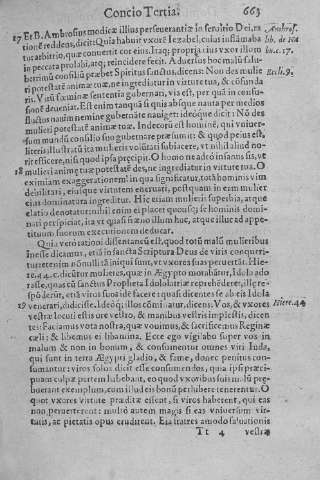 Concio Tertia. 663
17 Et B. Ambrosius modicæ illius perseuerantiæ in seruitio Dei, ra Ambros.
tionē reddens, dicit: Quia habuit vxorē Iezabel, cuius inflāmaba lib. de Na
tur arbitrio, quæ conuertit cor eius, Itaq; propria ius vxor illum in c. 17.
ante prolabi, atq; reincidere fecit. Aduersus hoc malū salu-
berrimū consiliū præbet Spiritus sanctus, dicens: Non des mulie Eccli. 9.
ri potestatē animæ tuæ, ne ingrediatur in virtute tua, & cōfunda
ris. Viri suæmme sententia gubernari, vis est, per quā in consu-
sionē deueniat. Est enim tanquā si quis absque nauta per medios
fluctus nauim nemine gubernāte nauiget: ideoque dicit: Nō des
mulieri potestatē animæ tuæ. Indecorū est hominē, qui vniuer-
sum mundū consilio suo gubernare præsumit: & quod peius est,
literis illustratū ita mulieris volūtati subiacere, vt nihil aliud no-
rit efficere, nisi quod ipsa præcipit. O homo ne adeò insanus sis, vt
18 mulieri animę tuæ potestatē des, ne ingrediatur in virtute tua. O
eximiam exaggerationem! in qua significatur, totā hominis vim
debilitari, eiusque virtutem eneruati, postquam in eum mulier
eius dominatura ingreditur. Hic etiam mulieris superbia, atque
elatio denotatur: nihil enim ei placet quousq; se hominis domi-
nari perspiciat, ita vt quasi ſræno illum huc, atque illuc ad appe-
titum suorum executionem deducat.
Quia verò rationi dissentaneū est, quod totū malū mulieribus
Inesse dicamus, etiā in sancta Scriptura Deus de viris conquiri-
tur: etenim nōnulli tā iniqui sunt, vt vxores suas peruertāt. Hie-
re. 44. c. dicūtur mulieres, quæ in Ægypto morabātur, Idola ado
rasse. quas cū sanctus Propheta Idololatriæ reprehēderet, ille re-
spōderūt, etiā viros suos idē facere: quasi dicentes se ab eis Idola
19 venerati, didicisse. Ideoq; illos cōminatur, dicens. Vos, & vxores Hiere. 44.
vestræ locuti estis ore vestro, & manibus vestris implestis, dicen
tes: Faciamus vota nostra, quæ vouimus, & sacrificemus Reginæ
cæli: & libemus ei libamina. Ecce ego vigilabo super vos in
malum & non in bonum, & consumentur omnes viri Iuda,
qui sunt in terra Ægypti gladio, & fame, donec penitus con-
sumantur: viros solos dicit esse consumendos, quia ipsi præci-
puam culpæ partem habebant, eo quod vxoribus suis malū præ-
buerant exemplum, com illud eis bonū perhibere tenerentur. O
quot vxores virtute præditæ essent, si viros haberent, qui eas
non peruerterent: multò autem magis si eas vniuersum vir-
tutis, ac pietatis opus erudirent. Ea fratres amodo saluationis
Tt 4 vestræ